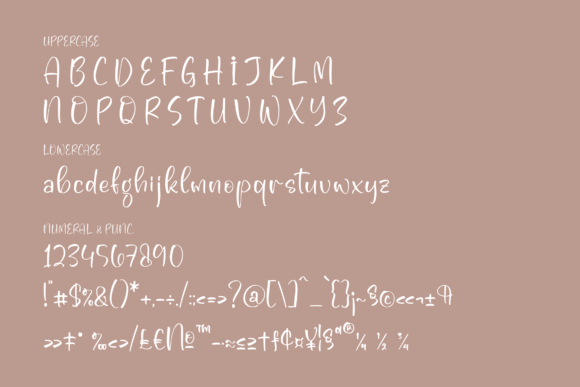 UPPERCASE
ABCDEFGHIJKLM
NOPQRSTUVWXYZ
LOWERCASE
abcdefghijklmnopqrstuvwxyz
NUMERAL & PUNC
1234567890
!"#$%&()*+,-÷./:;<=>?@[\]^_`{}¡~§©‹‹¬±¶
››‡° ‰<>/£€№™–·≈≤≥†ƒ¢¤¥¦§ª®¼ ½ ¾